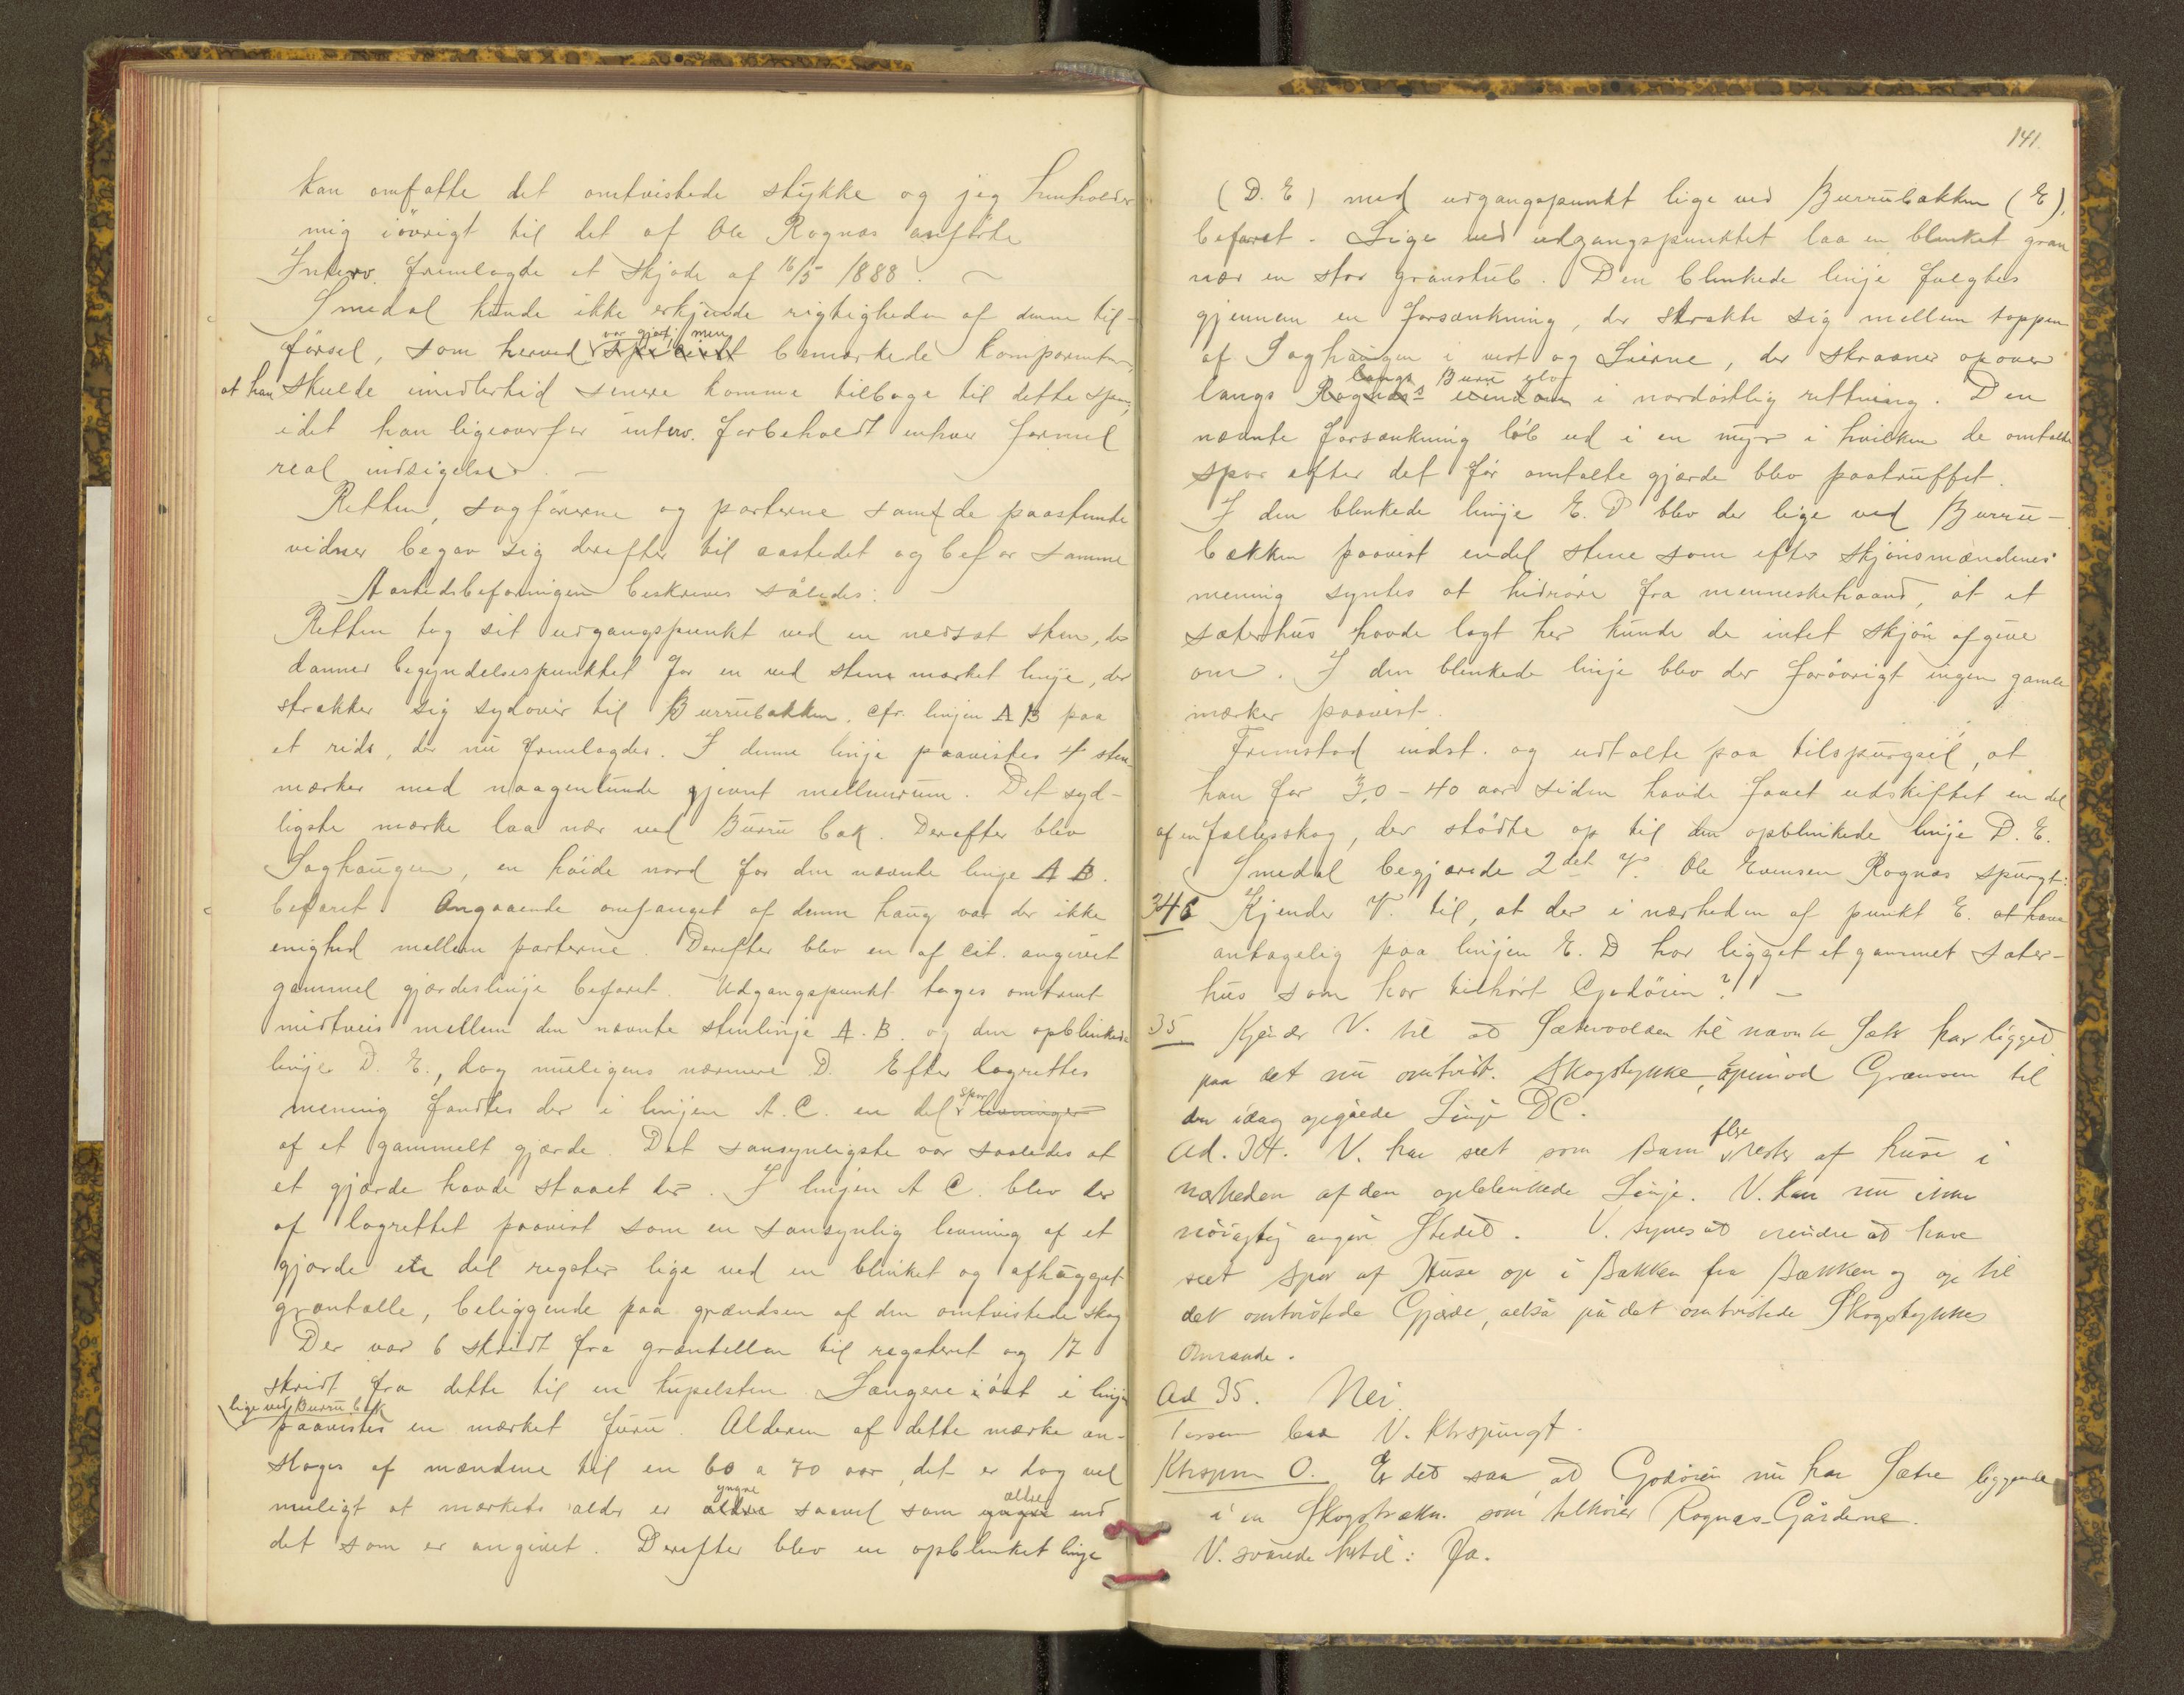 kan omfatte det omtvistede stykke og jeg henholder
mig iøvrigt til det af Ole Rognæs anførte
Interv. fremlagde et skjøde af 16/5 1888.
Smedal kunde ikke erkjende rigtigheden af denne til-
førsel, som herved var gjort; men bemærkede komparenten,
at han skulde imidlertid senere komme tilbage til dette spm,
idet han ligeoverfor interv. forbeholdt enhver formel
real indsigelse. —
Retten, sagførerne og parterne samt de paastevnte
vidner begav sig derefter til aastedet og befor samme
Aastedsbefaringen beskrives således:
Retten tog sit udgangspunkt ved en nedsat sten, der
danner begyndelsespunktet for en ved stene mærket linje, der
strækker sig sydover til Burrubækken, cfr. linjen A B paa
et rids, der nu fremlagdes. I denne linje paavistes 4 sten
mærker med naagenlunde gjevnt mellemrum. Det syd-
ligste mærke laa nær ved Burru bæk. Derefter blev
Saghaugen, en høide nord for den nævnte linje A B.
befaret. Angaaende omfanget af denne haug var der ikke
enighed mellem parterne. Derefter blev en af cit. angivet
gammel gjærdeslinje befaret. Udgangspunkt toges omtrent
midtveis mellem den nævnte stenlinje A. B. og den opblinkede
linje D. E., dog muligens nærmere D. Efter lagrettes
mening fandtes der i linjen A. C. en del spor levninger
af et gammelt gjærde. Det sansynligste var saaledes at
et gjærde havde staaet der. I linjen A C. blev der
af lagrettet paavist som en sansynlig levning af et
gjærde en del regster lige ved en blinket og afhugget
grantælle, beliggende paa grændsen af den omtvistede skog
Der var 6 skridt fra grantellen til regsteret og 12
skridt fra dette til en tupelsten. Længere i øst i linjen
lige ved Burru bæk
paavistes en mærket furu. Alderen af dette mærke an-
sloges af mændene til en 60 a 70 aar, det er dog vel
muligt at mærkets alder er yngre saavel som ældre end
det som er angivet. Derefter blev en opblinket linje
141.
(D. E) med udgangspunkt lige ved Burrubækken (E),
befaret. Lige ved udgangspunktet laa en blinket gran
nær en stor granstub. Den blinkede linje fulgtes
gjennem en forsænkning, der strakte sig mellem toppen
af Saghaugen i vest og Lierne, der skraaner opover
langs Rognæs's eiendom langs Buru elv i nordøstlig rettning. Den
nævnte forsænkning løb ud i en myr i hvilken de omtalte
spor efter det før omtalte gjærde blev paatruffet.
I den blinkede linje E. D blev der lige ved Burru-
bækken paavist endel stene som efter skjønsmændenes
mening syntes at hidrøre fra menneskehaand, at et
sæterhus havde lagt her kunde de intet skjøn afgive
om. I den blinkede linje blev der forøvrigt ingen gamle
mærker paavist.
Fremstod indst. og udtalte paa tilspurgsel, at
han for 30 - 40 aar siden havde faaet udskiftet en del
af en fællesskog, der stødte op til den opblinkede linje D. E.
Smedal begjærede 2det V. Ole Evensen Rognæs spurgt:
34 Kjender V. til, at der i nærheden af punkt E. at have
antagelig paa linjen E. D har ligget et gammet sæter-
hus som har tilhørt Godøien? —
35 Kjender V. til at Sætervolden til nævnte Sæter har ligget
paa det nu omtvist. Skogstykke, opimod Grænsen til
den idag opgåede Linje DC.
Ad. 34. V. har seet som Barn flere rester af huse i
nærheden af den opblinkede Linje. V. kan nu ikke
nøiagtig angive Stedet. V. synes at erindre at have
seet spor af Huse op i Bakken fra Bækken og op til
det omtvistede Gjærde, altså på det omtvistede Skogstykkes
Omraade.
Ad 35. Nei.
V. ktrspurgt.
Ktrspm O. Er det saa, at Godøien nu har Sætre liggende
i en Skogstrækn. som tilhører Rognæs-Gårdene.
V. svarede hertil: Ja.